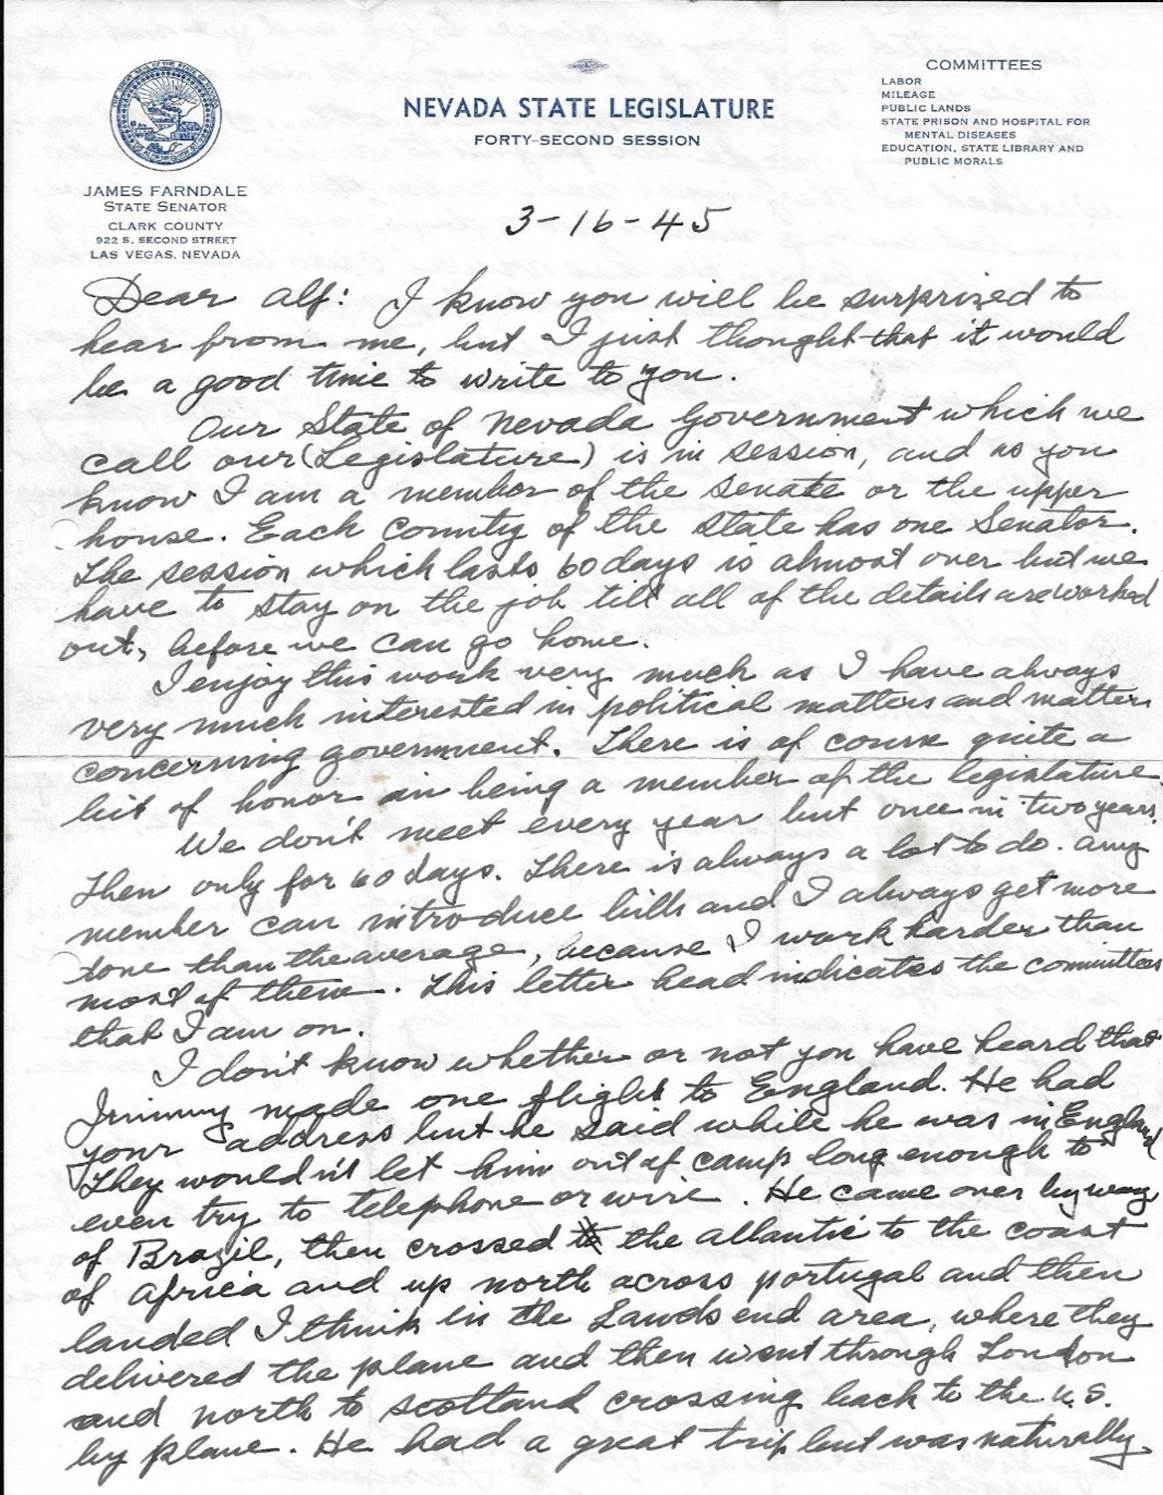 NEVADA STATE LEGISLATURE
FORTY-SECOND SESSION
JAMES FARNDALE
STATE SENATOR
CLARK COUNTY
922 S. SECOND STREET
LAS VEGAS, NEVADA
COMMITTEES
LABOR
MILEAGE
PUBLIC LANDS
STATE PRISON AND HOSPITAL FOR
MENTAL DISEASES
EDUCATION, STATE LIBRARY AND
PUBLIC MORALS
3-16-45
Dear Alf: I know you will be surprized to
hear from me, but I just thought that it would
be a good time to write to you.
Our State of Nevada Government which we
call our (Legislature) is in session, and as you
know I am a member of the Senate or the upper
house. Each County of the State has one Senator.
The session which lasts 60 days is almost over but we
have to stay on the job till all of the details are worked
out, before we can go home.
I enjoy this work very much as I have always
very much interested in political matters and matters
concerning government. There is of course quite a
bit of honor in being a member of the legislature.
We don't meet every year but once in two years.
Then only for 60 days. There is always a lot to do. Any
member can introduce bills and I always get more
done than the average, because I work harder than
most of them. This letter head indicates the committees
that I am on.
I don't know whether or not you have heard that
Jimmy made one flight to England. He had
your address but he said while he was in England
They wouldn't let him out of camp long enough to
even try to telephone or wire. He came over by way
of Brazil, then crossed to the Atlantic to the coast
of Africa and up north across portugal and then
landed I think in the Lands end area, where they
delivered the plane and then went through London
and north to Scotland crossing back to the U.S.
by plane. He had a great trip but was naturally